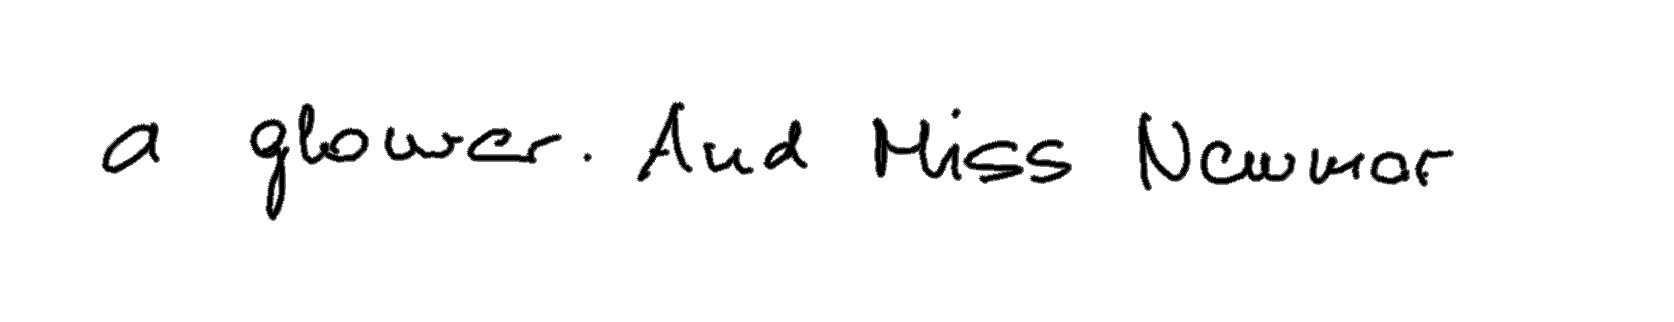 a glower. And Miss Newmar